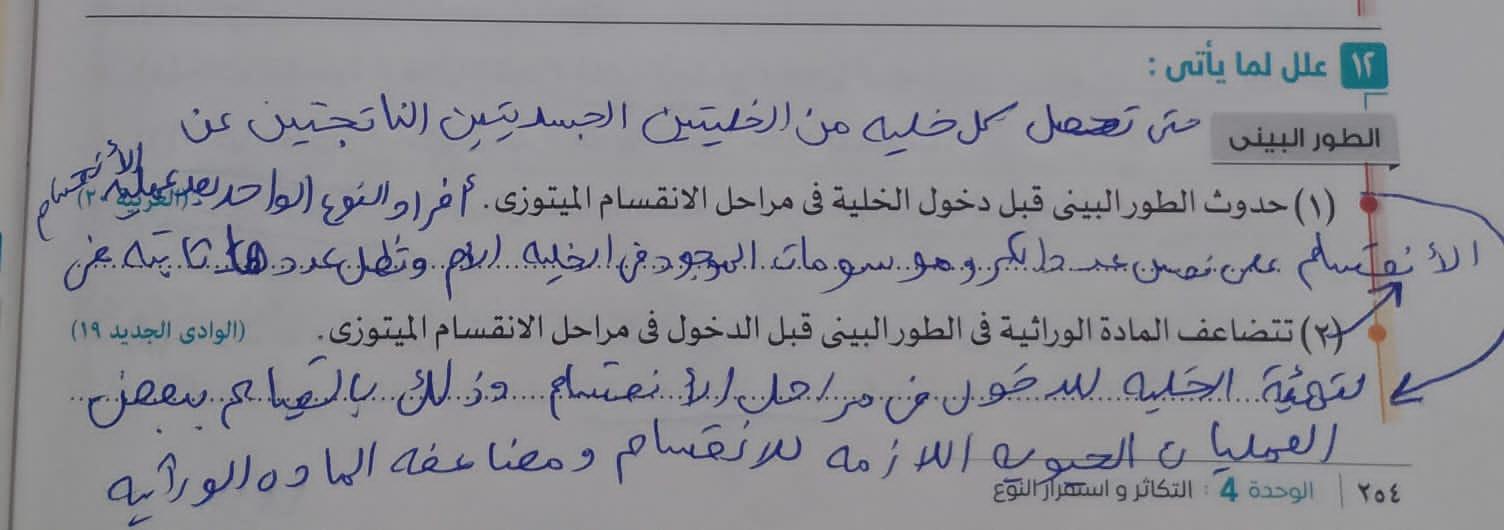 ١٢ علل لما يأتى :
حتى تحصل كل خليه من الخليتين الجسديتين الناتجتين عن
الطور البينى
الأنقسام
(١) حدوث الطور البينى قبل دخول الخلية فى مراحل الانقسام الميتوزى. أفراد النوع الواحد بعد عمليه
الأنقسام على نصف عدد الكروموسومات الموجود فى الخليه الأم وتظل عددها ثابته فى
(٢) تتضاعف المادة الوراثية فى الطور البينى قبل الدخول فى مراحل الانقسام الميتوزى. (الوادى الجديد ١٩)
لتهيئة الخليه للدخول فى مراحل الأنقسام وذلك بالقيام ببعض
العمليات الحيويه اللازمه للانقسام ومضاعفه الماده الوراثيه
٢٥٤ | الوحدة 4 : التكاثر و استمرار النوع